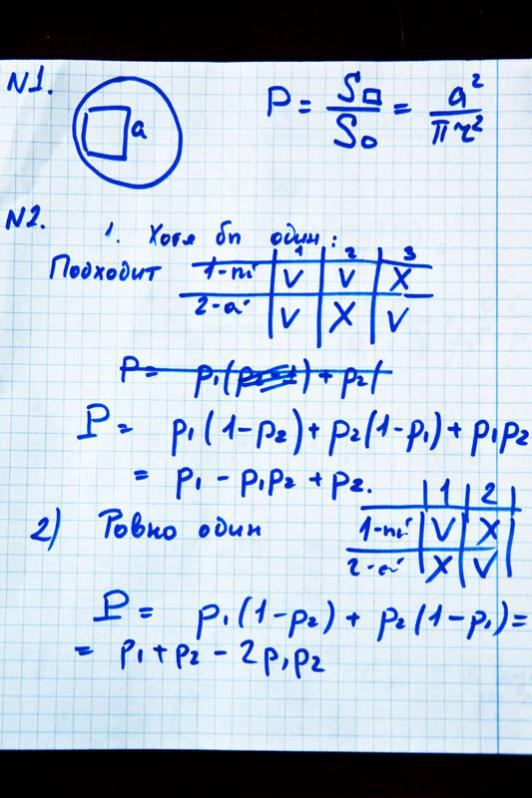 N1.
a
P = S□/S○ = a²/πr²
N2.
1. Хотя бы один:
Подходит
1 2 3
1-й V V X
2-й V X V
P = p₁(1-p₂) + p₂(1-p₁) + p₁p₂
= p₁ - p₁p₂ + p₂.
2) Ровно один
1 2
1-й V X
2-й X V
P = p₁(1-p₂) + p₂(1-p₁) =
= p₁ + p₂ - 2p₁p₂